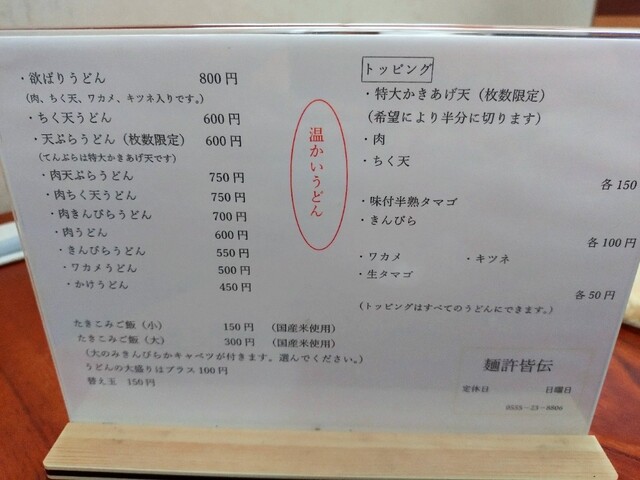 ・欲ばりうどん 800円
(肉、ちく天、ワカメ、キツネ入りです。)
・ちく天うどん 600円
・天ぷらうどん（枚数限定） 600円
(てんぷらは特大かきあげ天です)
・肉天ぷらうどん 750円
・肉ちく天うどん 750円
・肉きんぴらうどん 700円
・肉うどん 600円
・きんぴらうどん 550円
・ワカメうどん 500円
・かけうどん 450円
たきこみご飯（小） 150円 （国産米使用）
たきこみご飯（大） 300円 （国産米使用）
(大のみきんぴらかキャベツが付きます。選んでください。)
うどんの大盛りはプラス100円
替え玉 150円
温かいうどん
トッピング
・特大かきあげ天（枚数限定）
(希望により半分に切ります)
・肉
・ちく天
各150
・味付半熟タマゴ
・きんぴら
各100円
・ワカメ ・キツネ
・生タマゴ
各50円
(トッピングはすべてのうどんにできます。)
麺許皆伝
定休日 日曜日
0555－23－8806